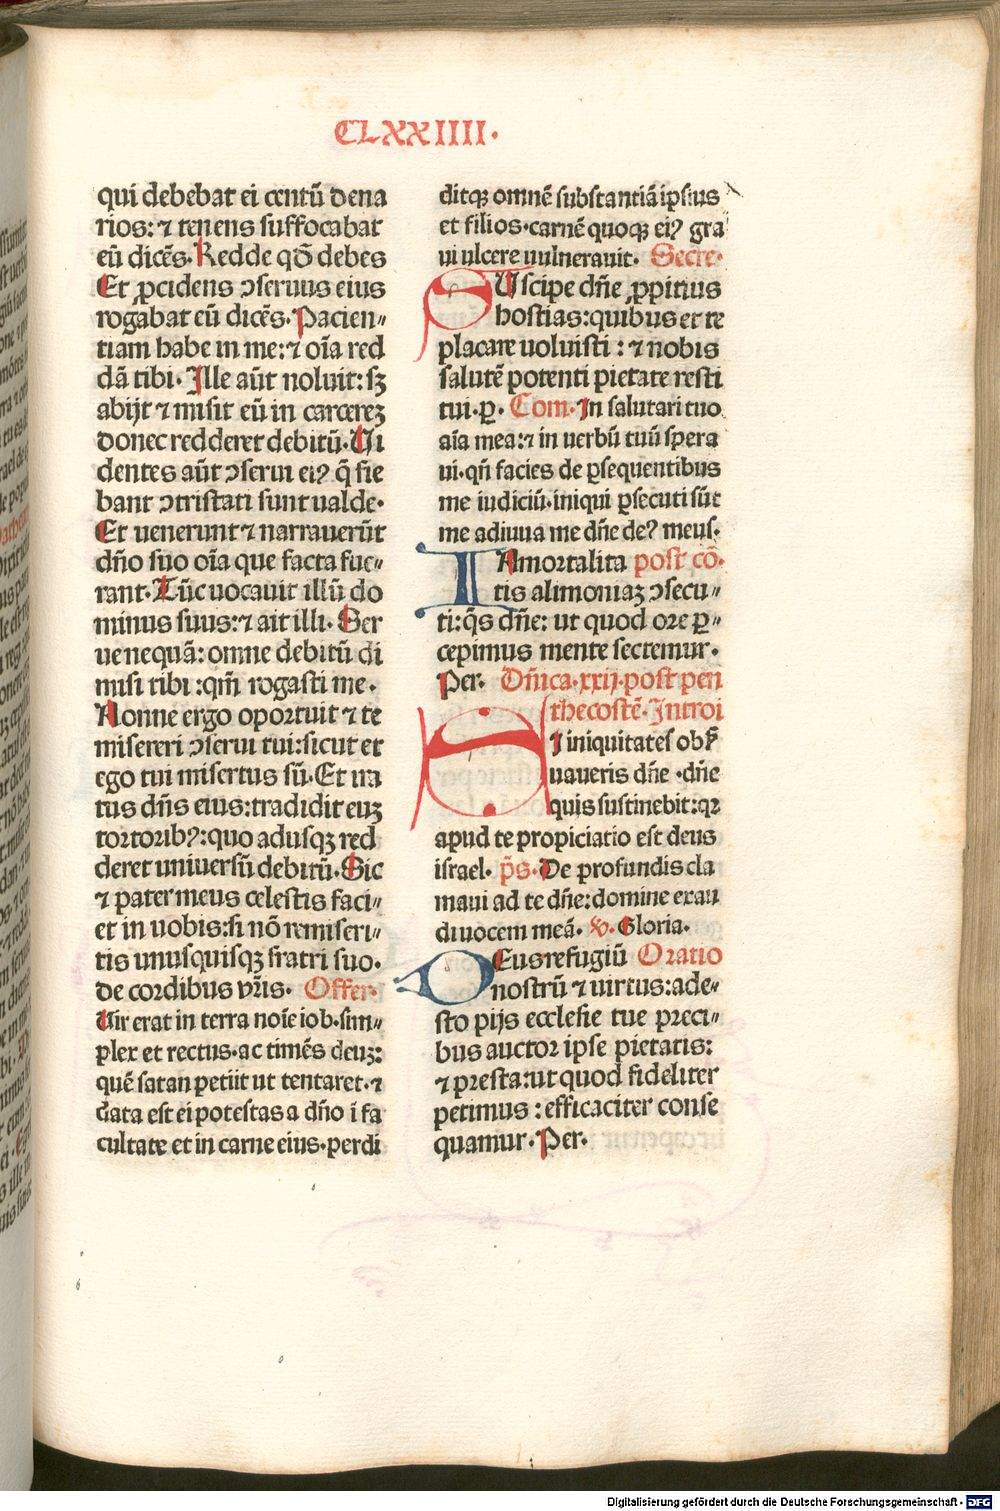 CLXXIIII.
qui debebat ei centū dena
rios: ⁊ tenens suffocabat
eū dicēs. Redde qđ debes
Et ꝓcidens ↄseruus eius
rogabat eū dicēs. Pacien〃
tiam habe in me: ⁊ oīa red
dā tibi. Ille aūt noluit: sꝫ
abijt ⁊ misit eū in carcereꝫ
donec redderet debitū. Ui
dentes aūt ↄserui eiꝰ q̄ fie
bant ↄtristati sunt ualde.
Et uenerunt ⁊ narrauerūt
dño suo oīa que facta fue〃
rant. Tūc uocauit illū do
minus suus: ⁊ ait illi. Ser
ue nequā: omne debitū di
misi tibi: qm̄ rogasti me.
Nonne ergo oportuit ⁊ te
misereri ↄserui tui: sicut et
ego tui misertus sū. Et ira
tus dñs eius: tradidit euꝫ
tortoribꝰ: quo adusqꝫ red
deret uniuersū debitū. Sic
⁊ pater meus celestis faci〃
et in uobis: si nō remiseri〃
tis unusquisqꝫ fratri suo.
de cordibus vr̄is. Offer.
Vir erat in terra noīe iob. sim〃
plex et rectus. ac timēs deuꝫ:
quē satan petiit ut tentaret. ⁊
data est ei potestas a dño ī fa
cultate et in carne eius. perdi
ditqꝫ omnē substantiā ipsius
et filios. carnē quoqꝫ eiꝰ gra
ui ulcere uulnerauit. Secre.
SUscipe dñe ꝓpitius
hostias: quibus et te
placare uoluisti: ⁊ nobis
salutē potenti pietate resti
tui. ꝑ. Com. In salutari tuo
aīa mea: ⁊ in uerbū tuū spera
ui. qn̄ facies de ꝑsequentibus
me iudiciū. iniqui ꝑsecuti sūt
me adiuua me dñe deꝰ meus.
IMmortalita post cō.
tis alimoniaꝫ ↄsecu〃
ti: q̄s dñe: ut quod ore ꝑ〃
cepimus mente sectemur.
Per. Dñica. xxij. post pen
thecostē. Introi
SI iniquitates obſ̄
uaueris dñe. dñe
quis sustinebit: qꝛ
apud te propiciatio est deus
israel. p̄s. De profundis cla
maui ad te dñe: domine exau
di uocem meā. v. Gloria.
DEus refugiū Oratio
nostrū ⁊ uirtus: ade〃
sto pijs ecclesie tue preci〃
bus auctor ipse pietatis:
⁊ presta: ut quod fideliter
petimus: efficaciter conse
quamur. Per.
Digitalisierung gefördert durch die Deutsche Forschungsgemeinschaft - DFG